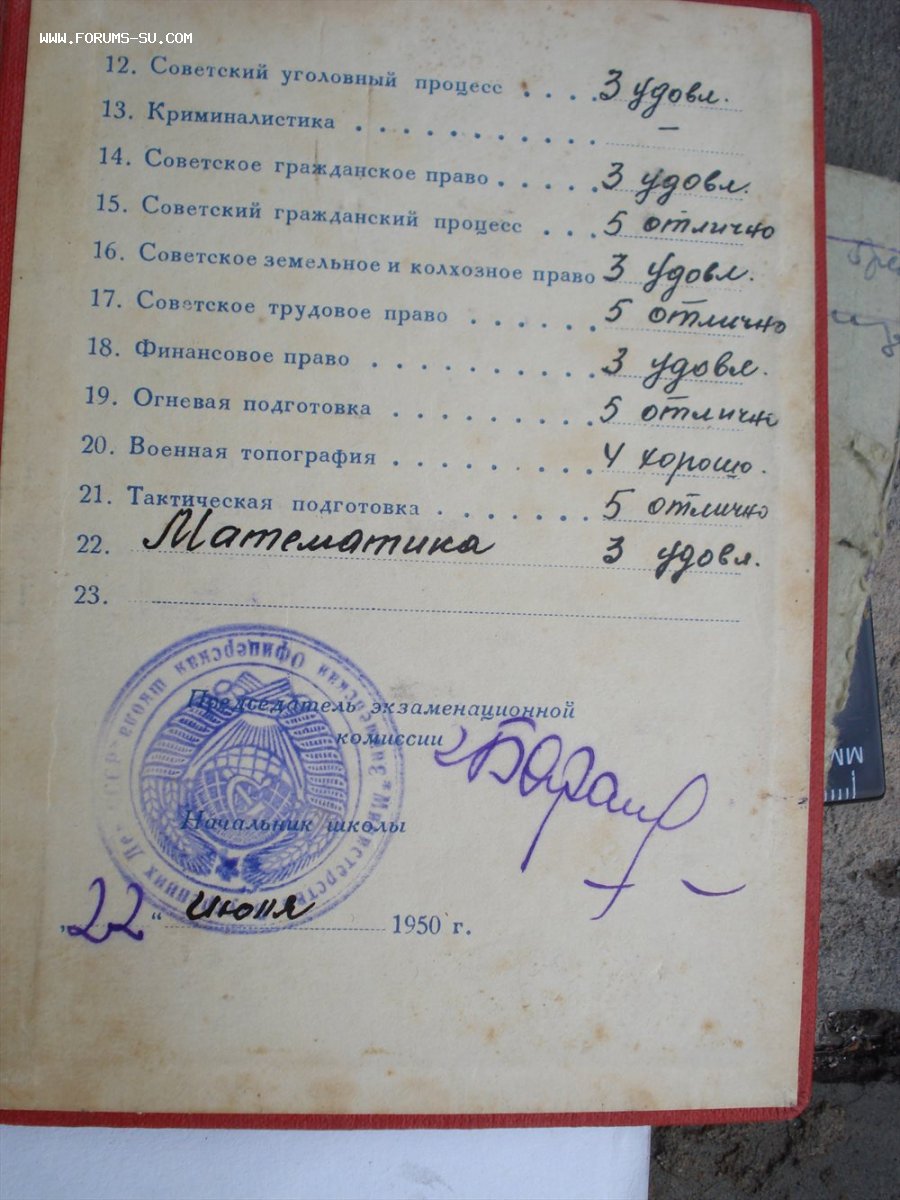 WWW.FORUMS-SU.COM
12. Советский уголовный процесс . . . . 3 удовл.
13. Криминалистика . . . . . . . . . . . –
14. Советское гражданское право . . . . . 3 удовл.
15. Советский гражданский процесс . . . . 5 отлично
16. Советское земельное и колхозное право 3 удовл.
17. Советское трудовое право . . . . . . 5 отлично
18. Финансовое право . . . . . . . . . . 3 удовл.
19. Огневая подготовка . . . . . . . . . 5 отлично
20. Военная топография . . . . . . . . . 4 хорошо.
21. Тактическая подготовка . . . . . . . 5 отлично
22. Математика 3 удовл.
23.
Председатель экзаменационной
комиссии
Начальник школы
Офицерская школа
„22“ июня 1950 г.
ММ